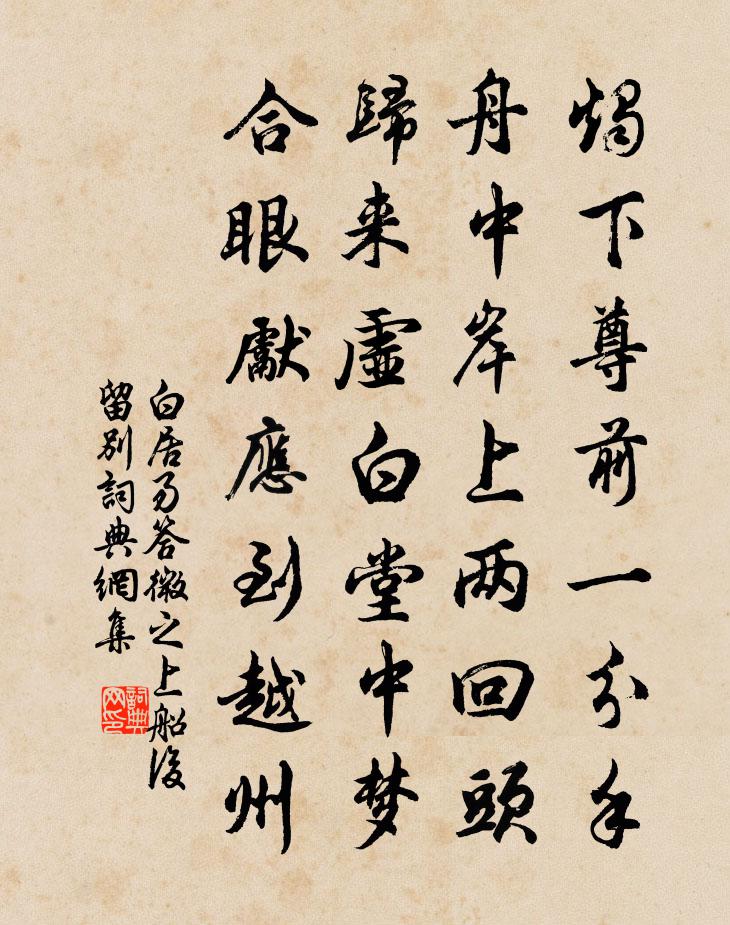 燭下尊前一分手
舟中岸上两回頭
歸来虛白堂中梦
合眼獻應到越州
白居易答微之上船後
留别詞典網集
詞典网印